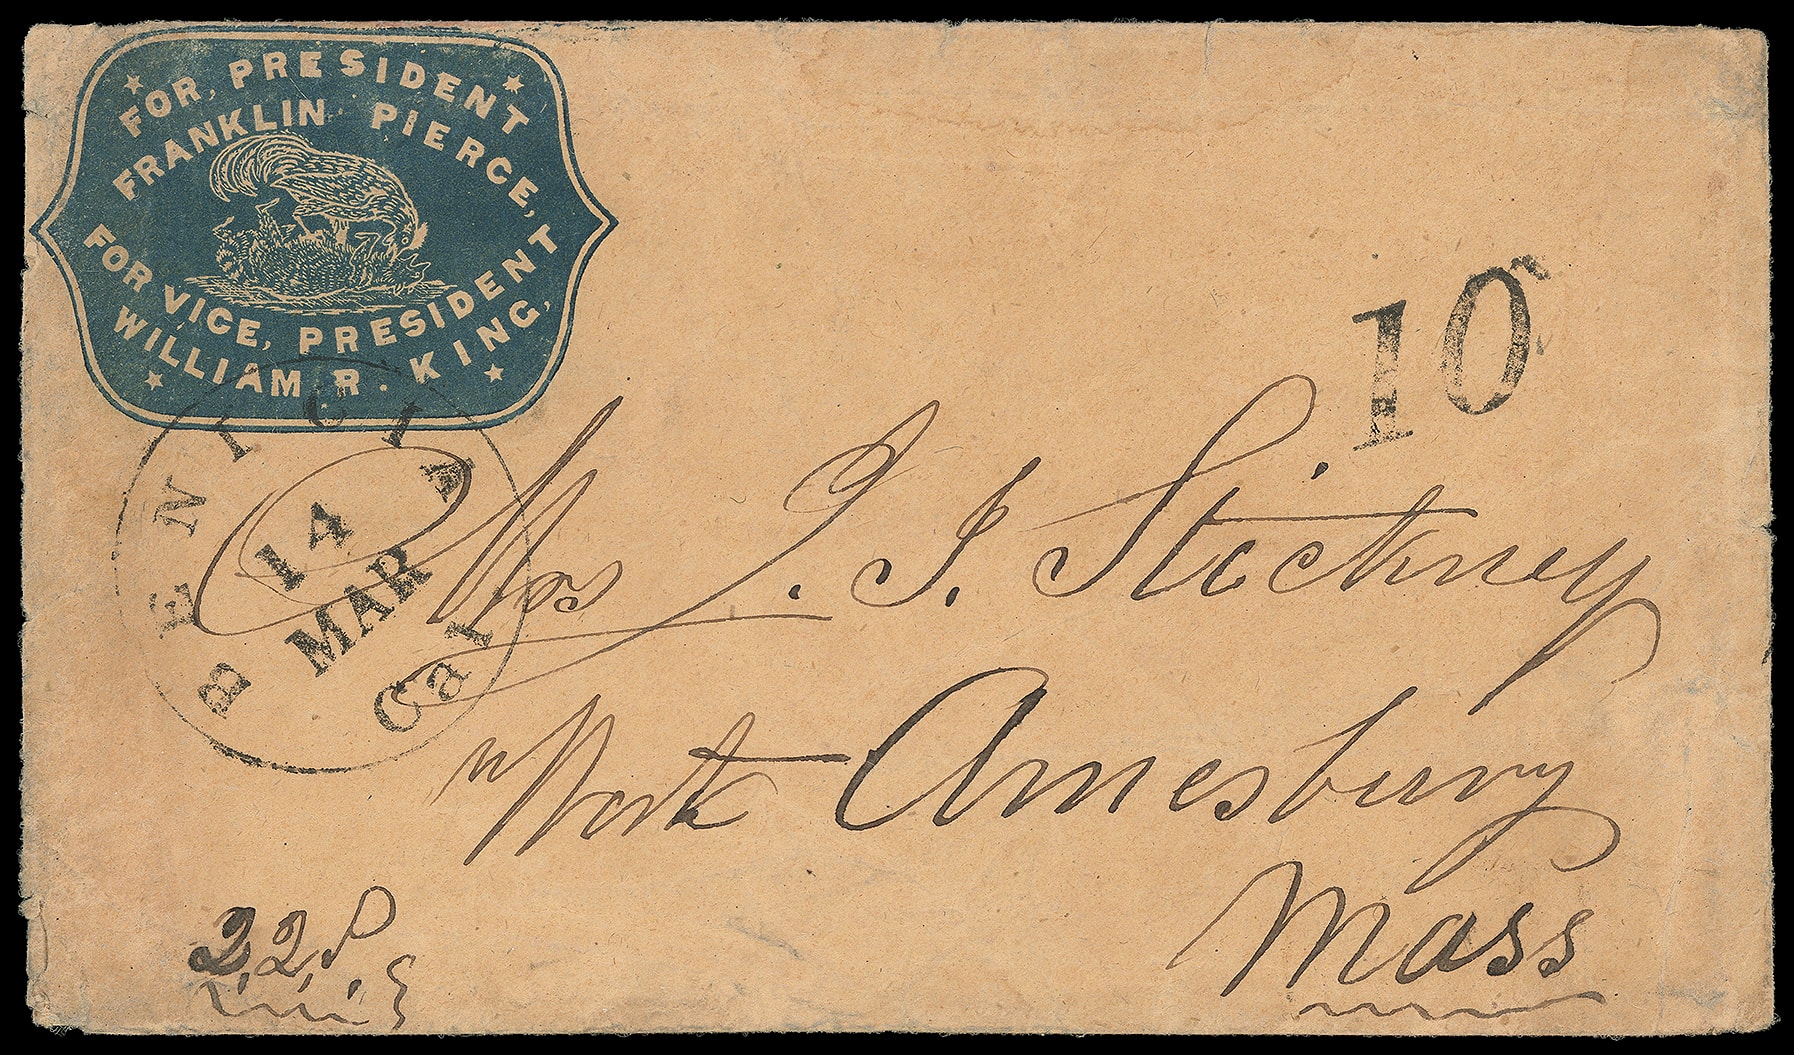 FOR, PRESIDENT
FRANKLIN PIERCE,
FOR VICE, PRESIDENT
WILLIAM. R. KING,
BENICIA
14
MAR
Cal
10
J. I. Stickney
"North Amesbury
Mass